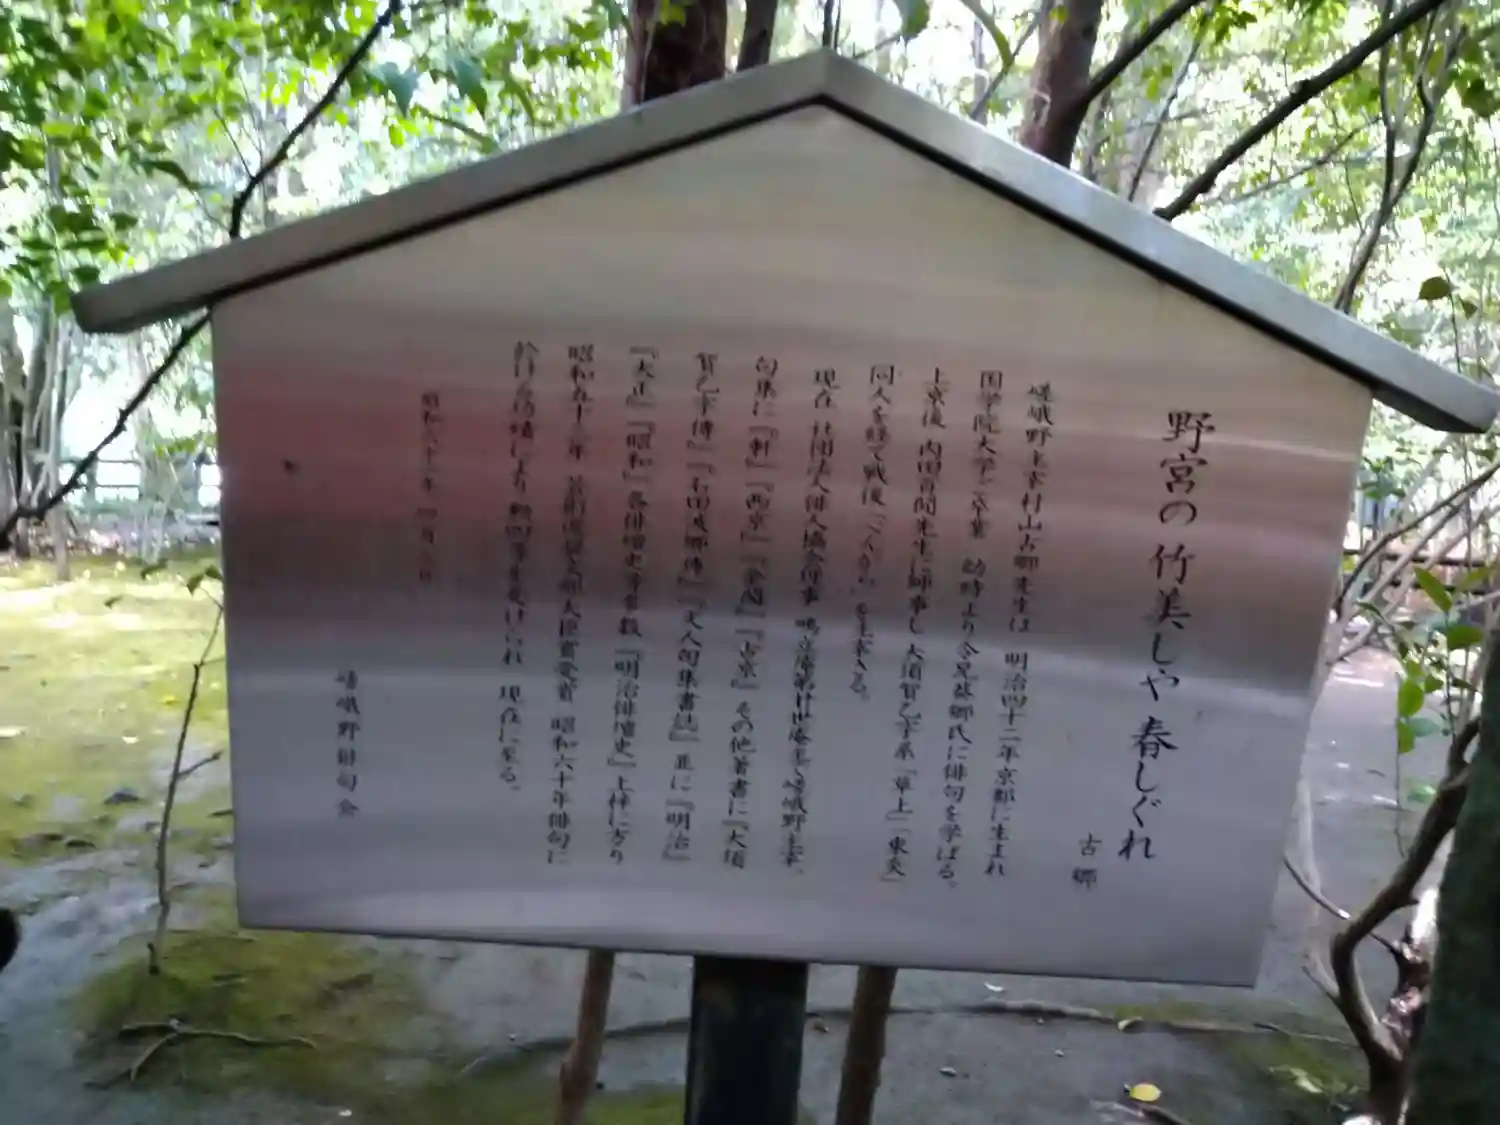 野宮の竹美しや春しぐれ
古郷
嵯峨野主宰村山古郷先生は 明治四十二年京都に生まれ
国学院大学ご卒業 幼時より令兄葵郷氏に俳句を学ばる。
上京後 内田百閒先生に師事し大須賀乙字系「草上」「東炎」
同人を経て戦後「べんがら」を主宰さる。
現在 社団法人俳人協会理事 鴫立庵第廿世庵主 嵯峨野主宰。
句集に『軒』『西京』『金閣』『古京』その他著書に『大須
賀乙字傳』『石田波郷傳』『文人句集書誌』正に『明治』
『大正』『昭和』各俳壇史等多数『明治俳壇史』上梓に方り
昭和五十三年 芸術選奨文部大臣賞受賞 昭和六十年俳句に
於ける功績により 勲四等を受けられ 現在に至る。
昭和六十一年 四月
嵯峨野俳句会